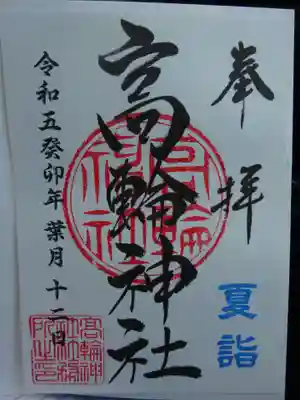 奉拝
夏詣
高輪神社
令和五癸卯年 葉月 十二日
高輪神社
高輪神社社務所之印